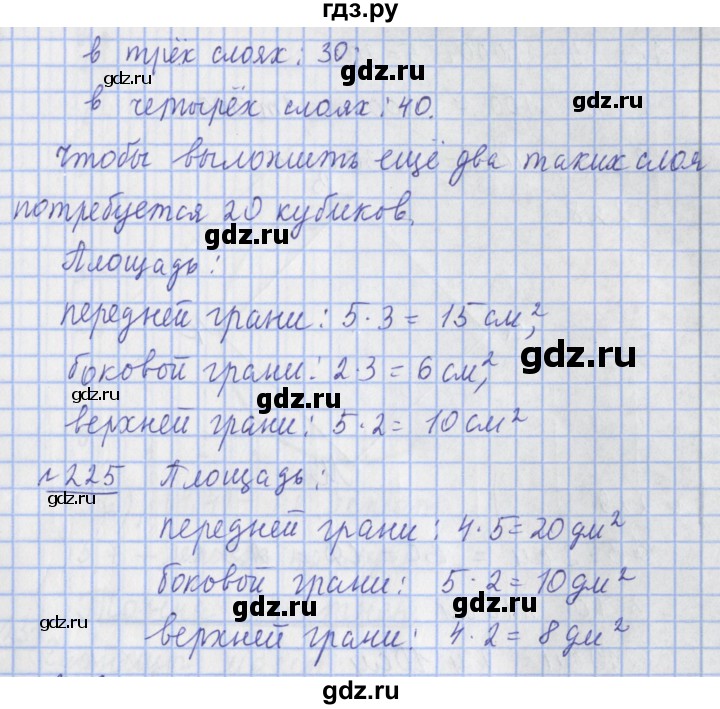 гдз.ру
в трёх слоях: 30;
gdz.ru
в четырёх слоях: 40.
gdz.ru
gdz.ru
Чтобы выложить ещё два таких слоя
потребуется 20 кубиков.
gdz.ru
Площадь:
передней грани: 5·3 = 15 см²,
gdz.ru
боковой грани: 2·3 = 6 см²,
gdz.ru
gdz.ru
верхней грани: 5·2 = 10 см²
№225 Площадь:
gdz.ru
передней грани: 4·5 = 20 дм²
боковой грани: 5·2 = 10 дм²
gdz.ru
gdz.ru
gdz.ru
верхней грани: 4·2 = 8 дм²
gdz.ru